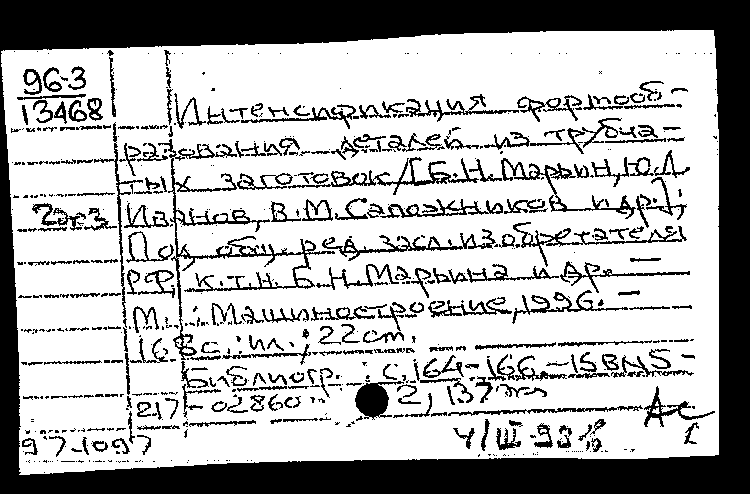 96-3
13468
Интенсификация формооб-
разования деталей из трубча-
тых заготовок/[Б.Н. Марьин, Ю.Л.
2экз Иванов, В.М. Сапожников и др.];
Под общ. ред. засл. изобретателя
РФ, к.т.н. Б.Н. Марьина и др. —
М. : Машиностроение, 1996. —
168с. : ил. ; 22см.
Библиогр. : с. 164-166. — ISBN 5-
217-02860
97-1097